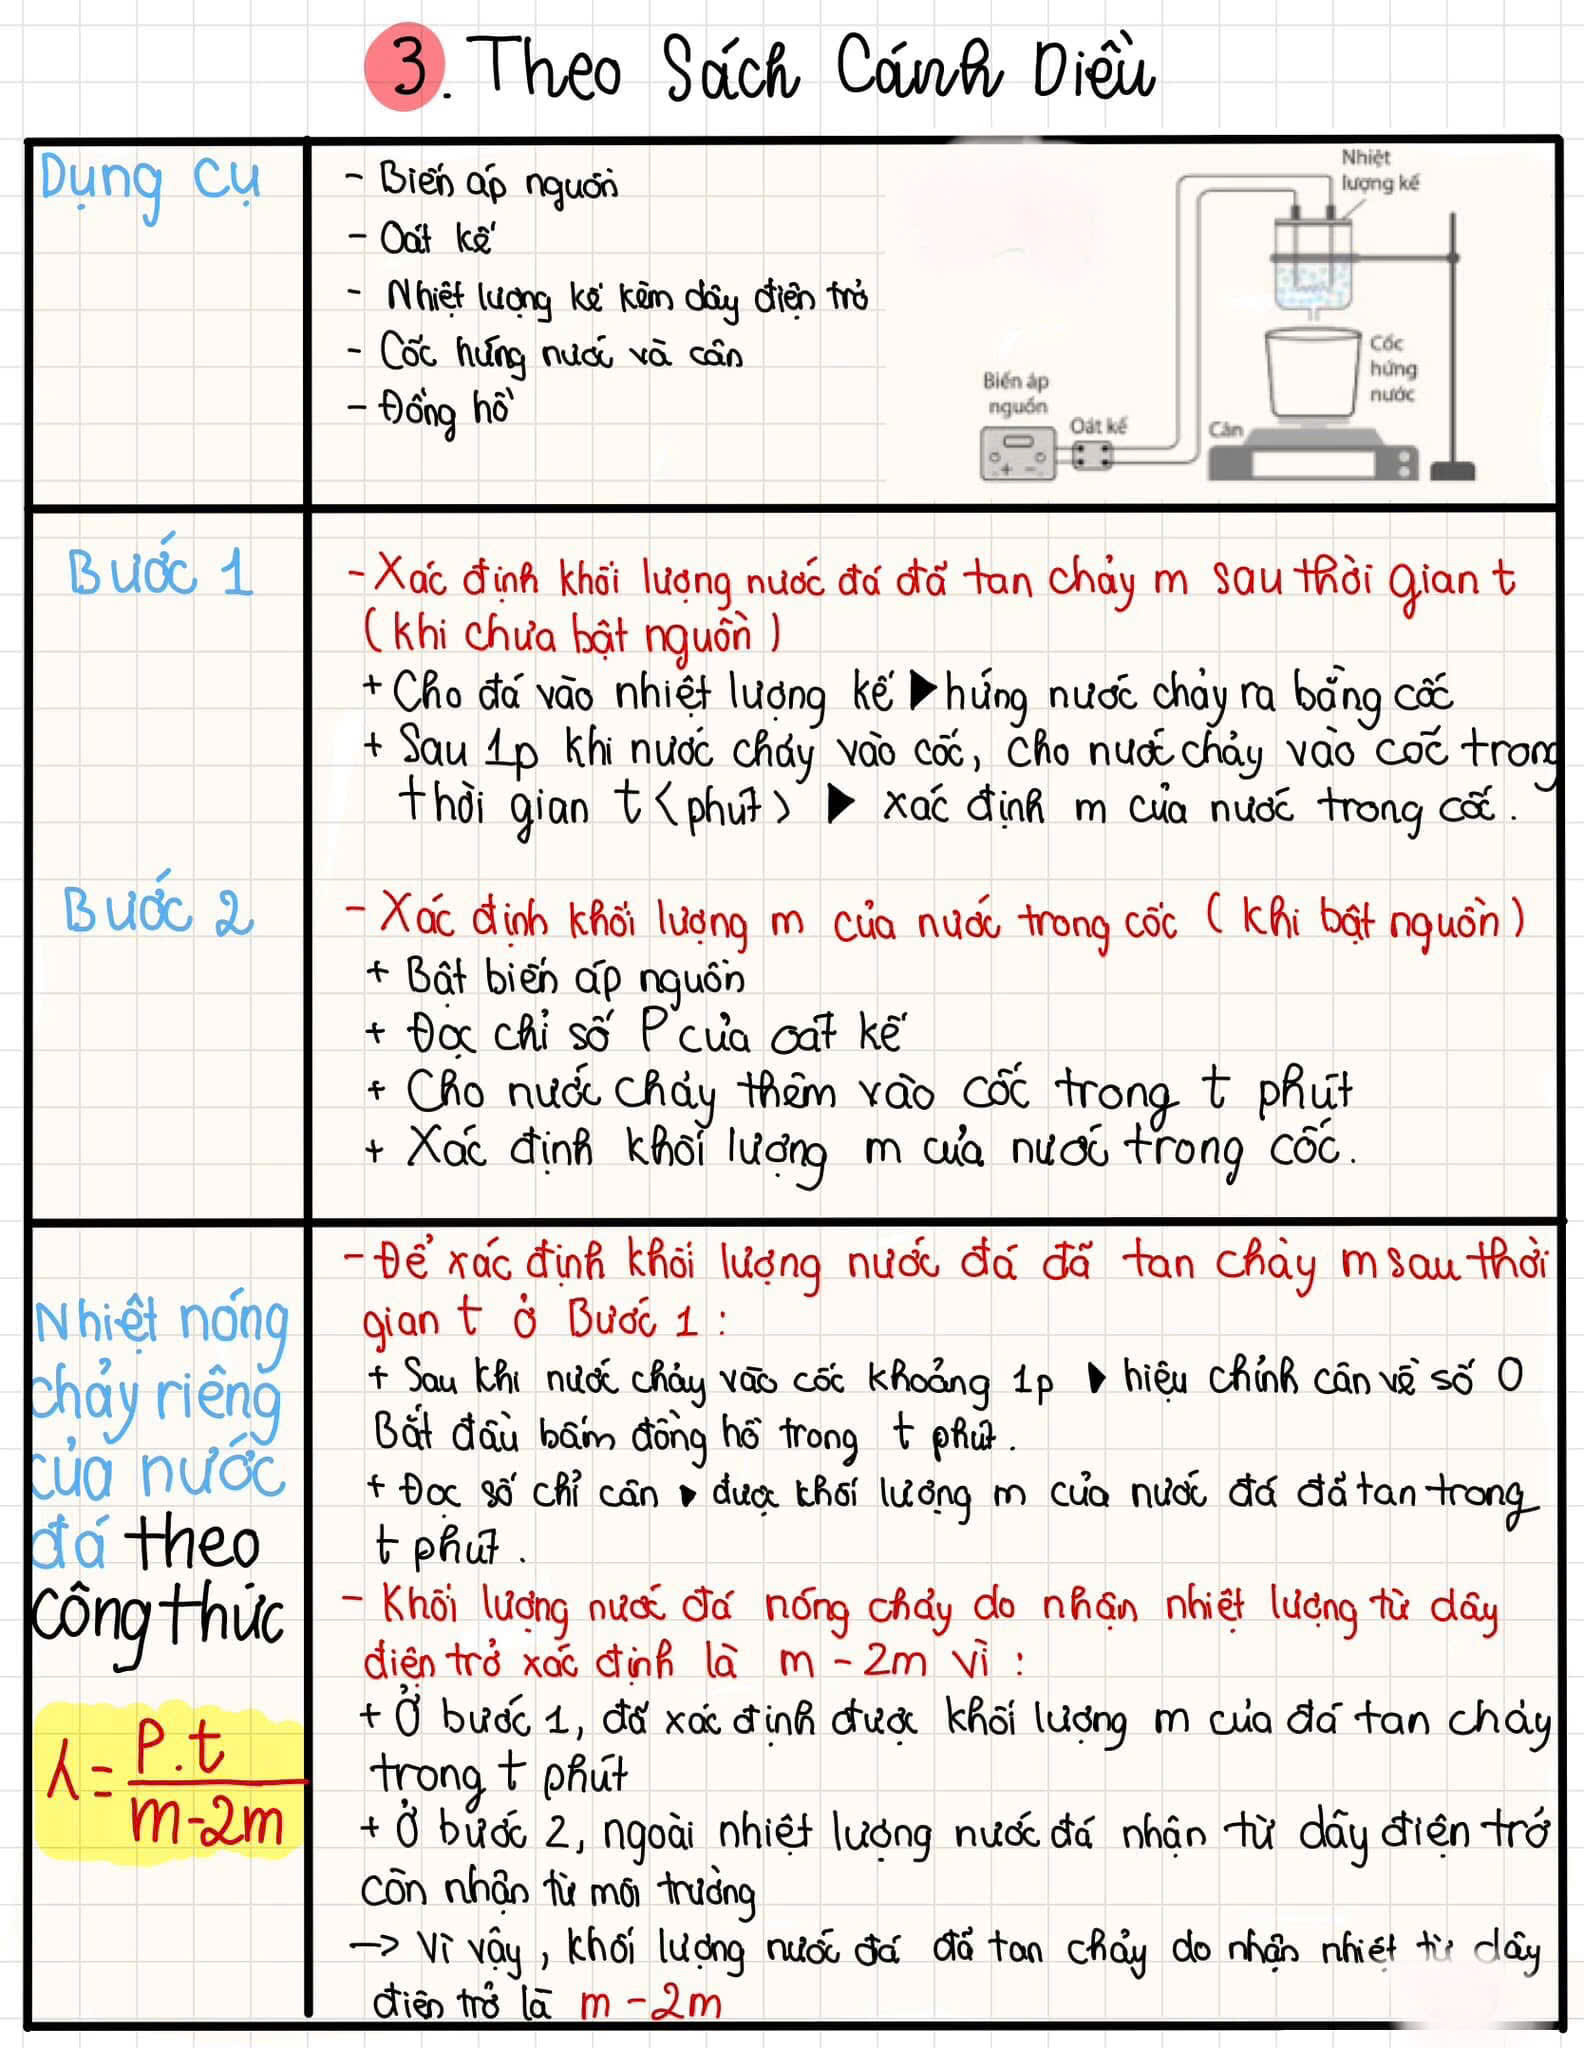 3. Theo Sách Cánh Diều
Dụng cụ
- Biến áp nguồn
- Oát kế
- Nhiệt lượng kế kèm dây điện trở
- Cốc hứng nước và cân
- Đồng hồ
Nhiệt
lượng kế
Cốc
hứng
nước
Biến áp
nguồn
Oát kế
Cân
Bước 1
- Xác định khối lượng nước đá đã tan chảy m sau thời gian t
(khi chưa bật nguồn)
+ Cho đá vào nhiệt lượng kế ▶ hứng nước chảy ra bằng cốc
+ Sau 1p khi nước chảy vào cốc, cho nước chảy vào cốc trong
thời gian t (phút) ▶ xác định m của nước trong cốc.
Bước 2
- Xác định khối lượng m của nước trong cốc (khi bật nguồn)
+ Bật biến áp nguồn
+ Đọc chỉ số P của oát kế
+ Cho nước chảy thêm vào cốc trong t phút
+ Xác định khối lượng m của nước trong cốc.
Nhiệt nóng
chảy riêng
của nước
đá theo
công thức
λ = P.t
m-2m
- Để xác định khối lượng nước đá đã tan chảy m sau thời
gian t ở Bước 1:
+ Sau khi nước chảy vào cốc khoảng 1p ▶ hiệu chỉnh cân về số 0
Bắt đầu bấm đồng hồ trong t phút.
+ Đọc số chỉ cân ▶ được khối lượng m của nước đá đã tan trong
t phút.
- Khối lượng nước đá nóng chảy do nhận nhiệt lượng từ dây
điện trở xác định là m - 2m vì:
+ Ở bước 1, đã xác định được khối lượng m của đá tan chảy
trong t phút
+ Ở bước 2, ngoài nhiệt lượng nước đá nhận từ dây điện trở
còn nhận từ môi trường
-> Vì vậy, khối lượng nước đá đã tan chảy do nhận nhiệt từ dây
điện trở là m - 2m